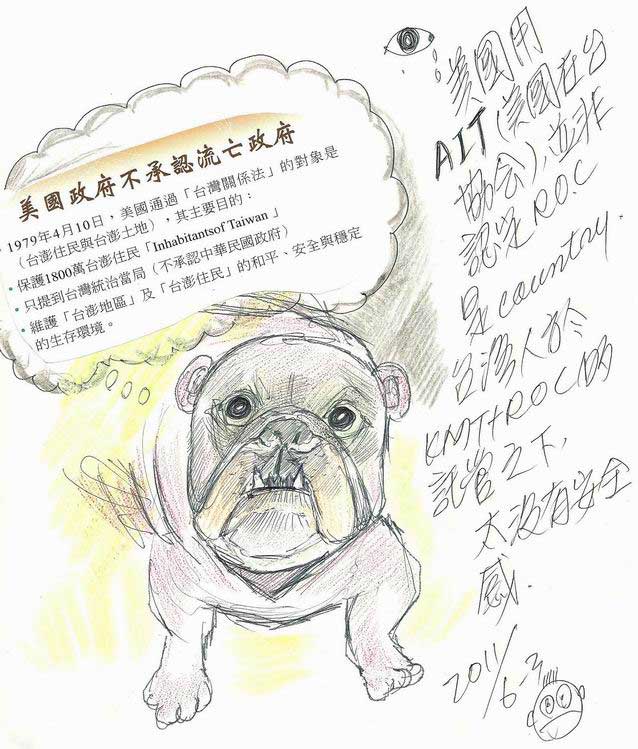 美國政府不承認流亡政府
1979年4月10日，美國通過「台灣關係法」的對象是
（台澎住民與台澎土地），其主要目的：
• 保護1800萬台澎住民「Inhabitantsof Taiwan」
• 只提到台灣統治當局（不承認中華民國政府）
• 維護「台澎地區」及「台澎住民」的和平、安全與穩定
的生存環境。
美國用
AIT（美國在台
協会），並非
認定R.O.C
是country.
台灣人於
KMT+ROC的
託管之下，
太沒有安全
感.
2011/6-2